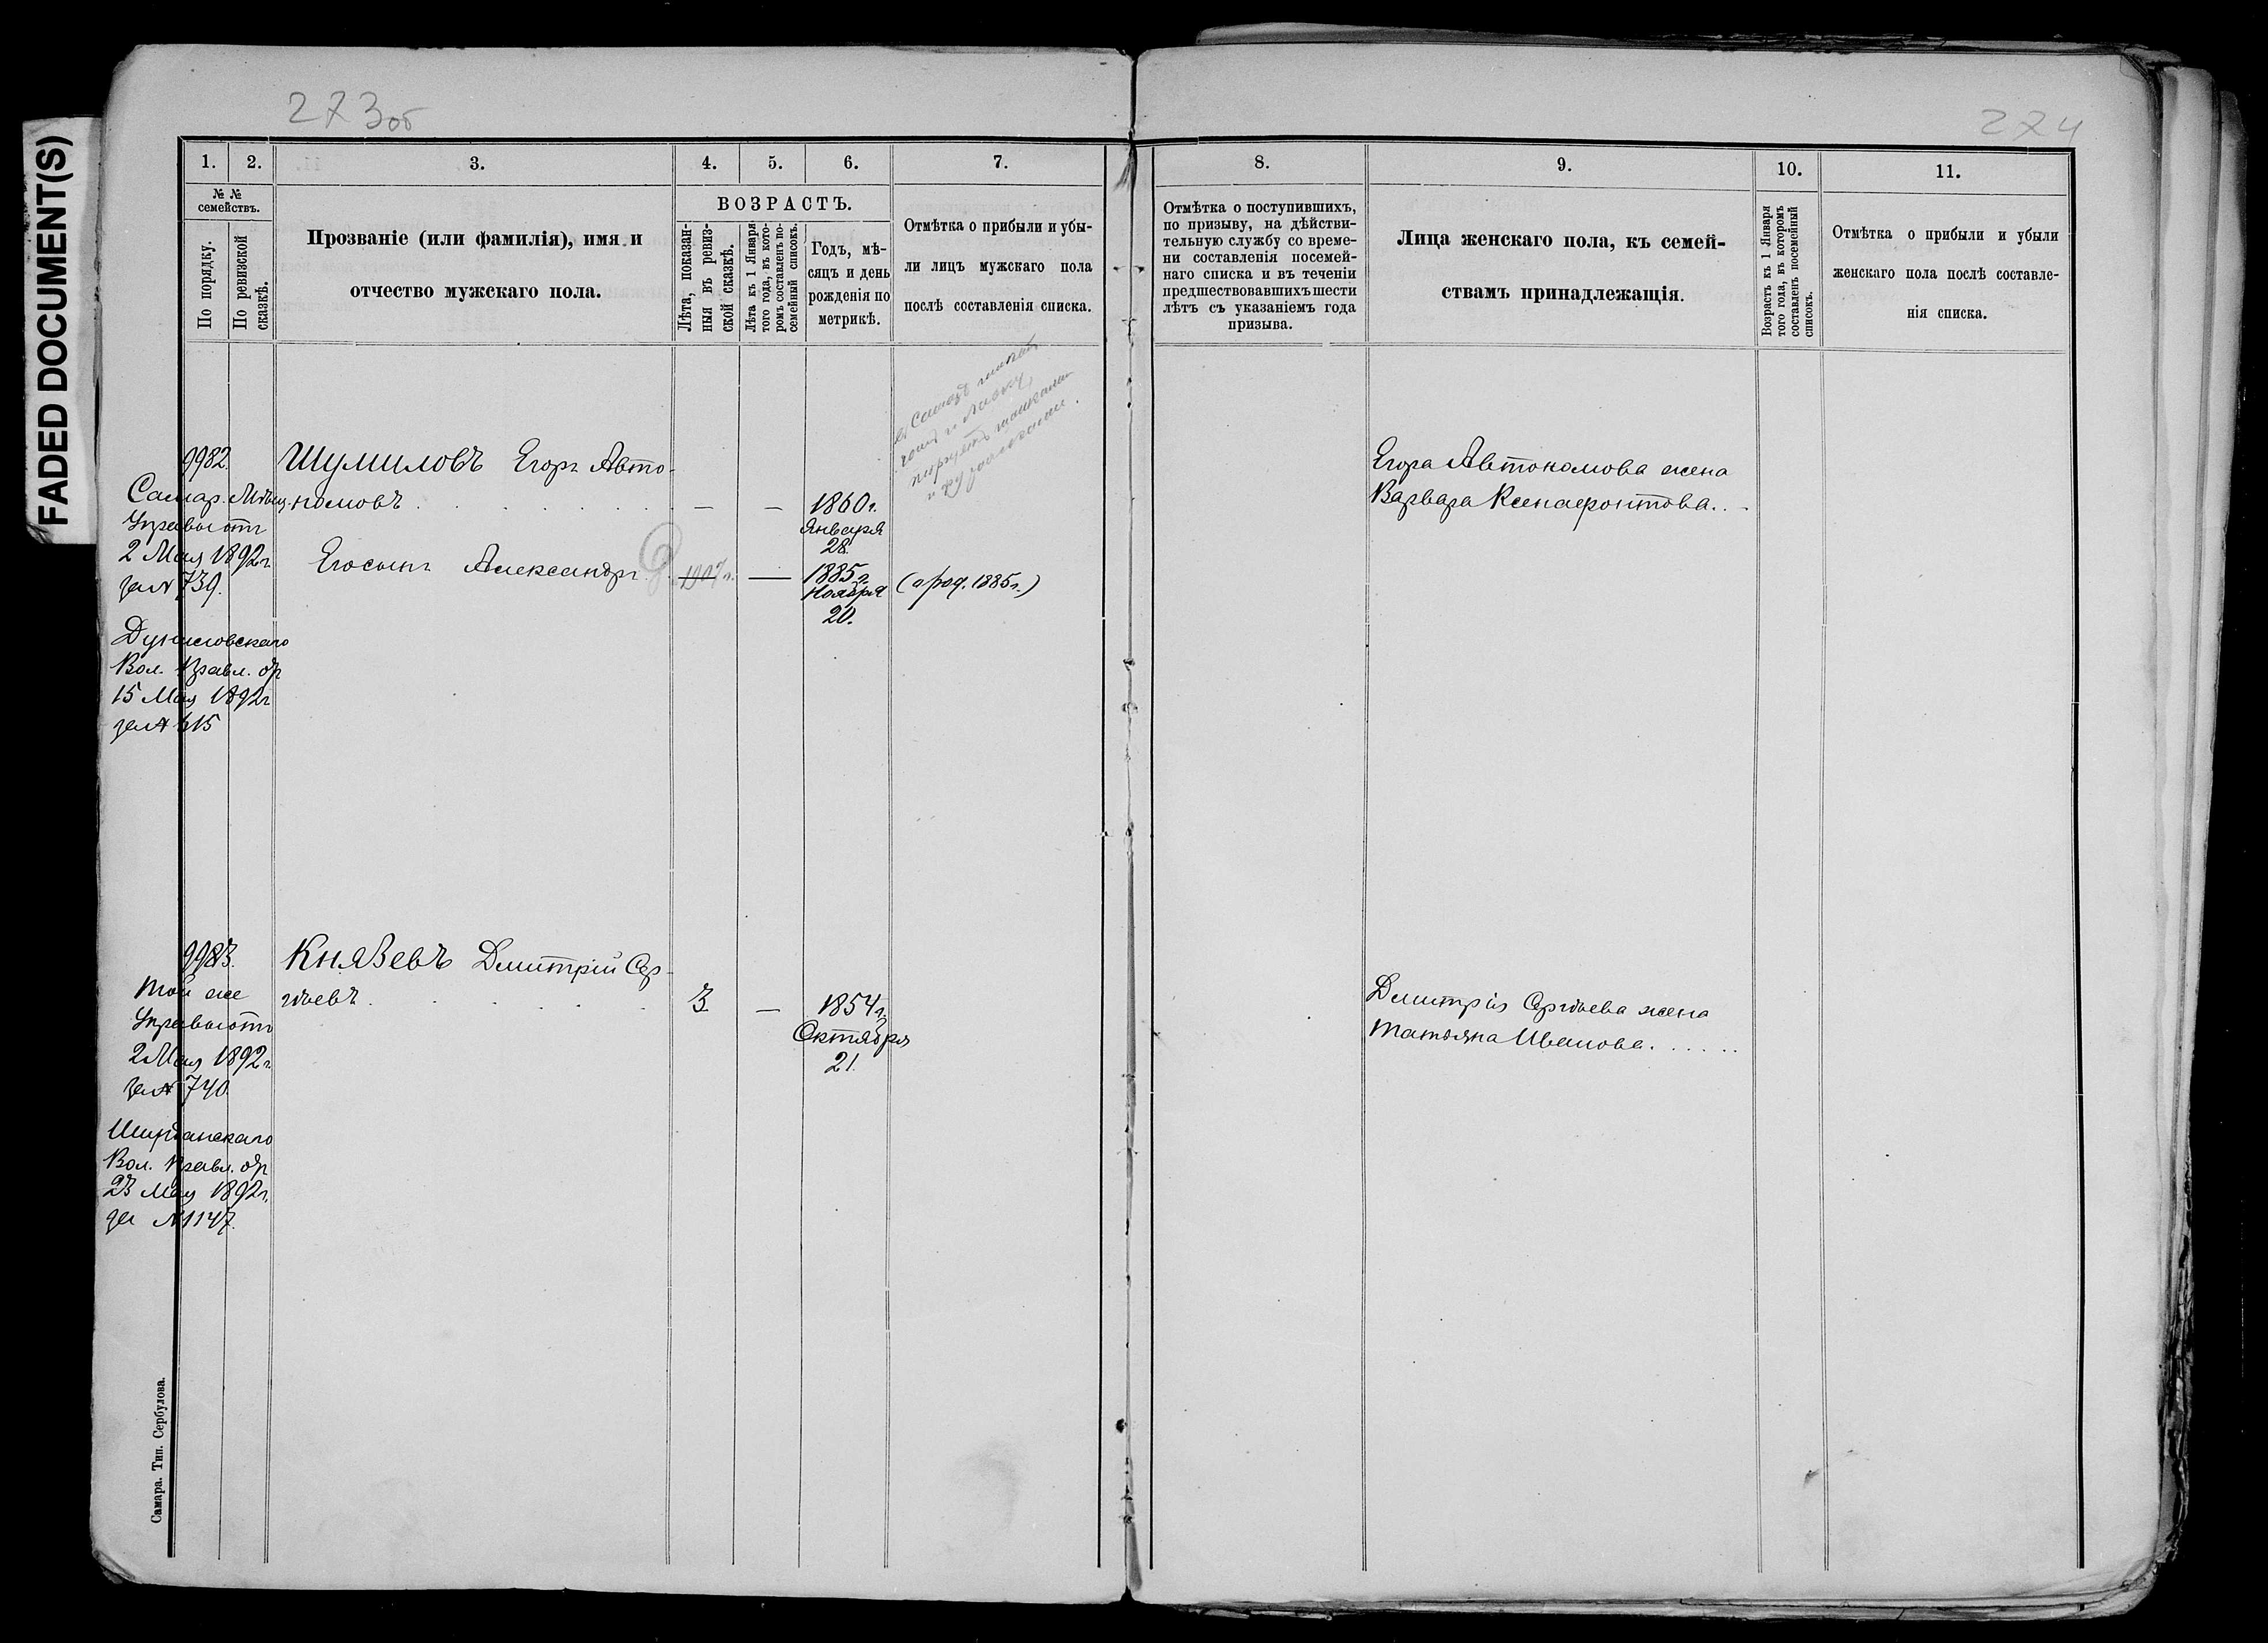 FADED DOCUMENT(S)
273об
274
1.
2.
3.
4.
5.
6.
7.
8.
9.
10.
11.
№ №
семействъ.
По порядку.
По ревизской
сказкѣ.
Прозваніе (или фамилія), имя и
отчество мужскаго пола.
ВОЗРАСТЪ.
Лѣта, показан-
ныя въ ревиз-
ской сказкѣ.
Лѣта къ 1 Января
того года, въ кото-
ромъ составленъ по-
семейный списокъ.
Годъ, мѣ-
сяцъ и день
рожденія по
метрикѣ.
Отмѣтка о прибыли и убы-
ли лицъ мужскаго пола
послѣ составленія списка.
Отмѣтка о поступившихъ,
по призыву, на дѣйстви-
тельную службу со време-
ни составленія посемей-
наго списка и въ теченіи
предшествовавшихъ шести
лѣтъ съ указаніемъ года
призыва.
Лица женскаго пола, къ семей-
ствамъ принадлежащія.
Возрастъ къ 1 Января
того года, въ которомъ
составленъ посемейный
списокъ.
Отмѣтка о прибыли и убыли
женскаго пола послѣ составле-
нія списка.
9982.
Самар. Мѣщ.
Управы отъ
2 Мая 1892г
за № 739.
Вол. Правл. от
15 Мая 1892г
за № 615
Шумиловъ Егоръ Авто-
номовъ
— — 1860г.
Января
28.
Его сынъ Александръ
1907г. — 1885г.
Ноября
20.
(о род. 1885г.)
Егора Автономова жена
Варвара Ксенофонтова..
9983.
Той же
Управы отъ
2 Мая 1892г
за № 740
Вол. Правл. от
23 Мая 1892г.
за № 1147.
Князевъ Дмитрій Сер-
гѣевъ
3 — 1854г.
Октября
21.
Дмитрія Сергѣева жена
Татьяна Иванова......
Самара. Тип. Сербулова.